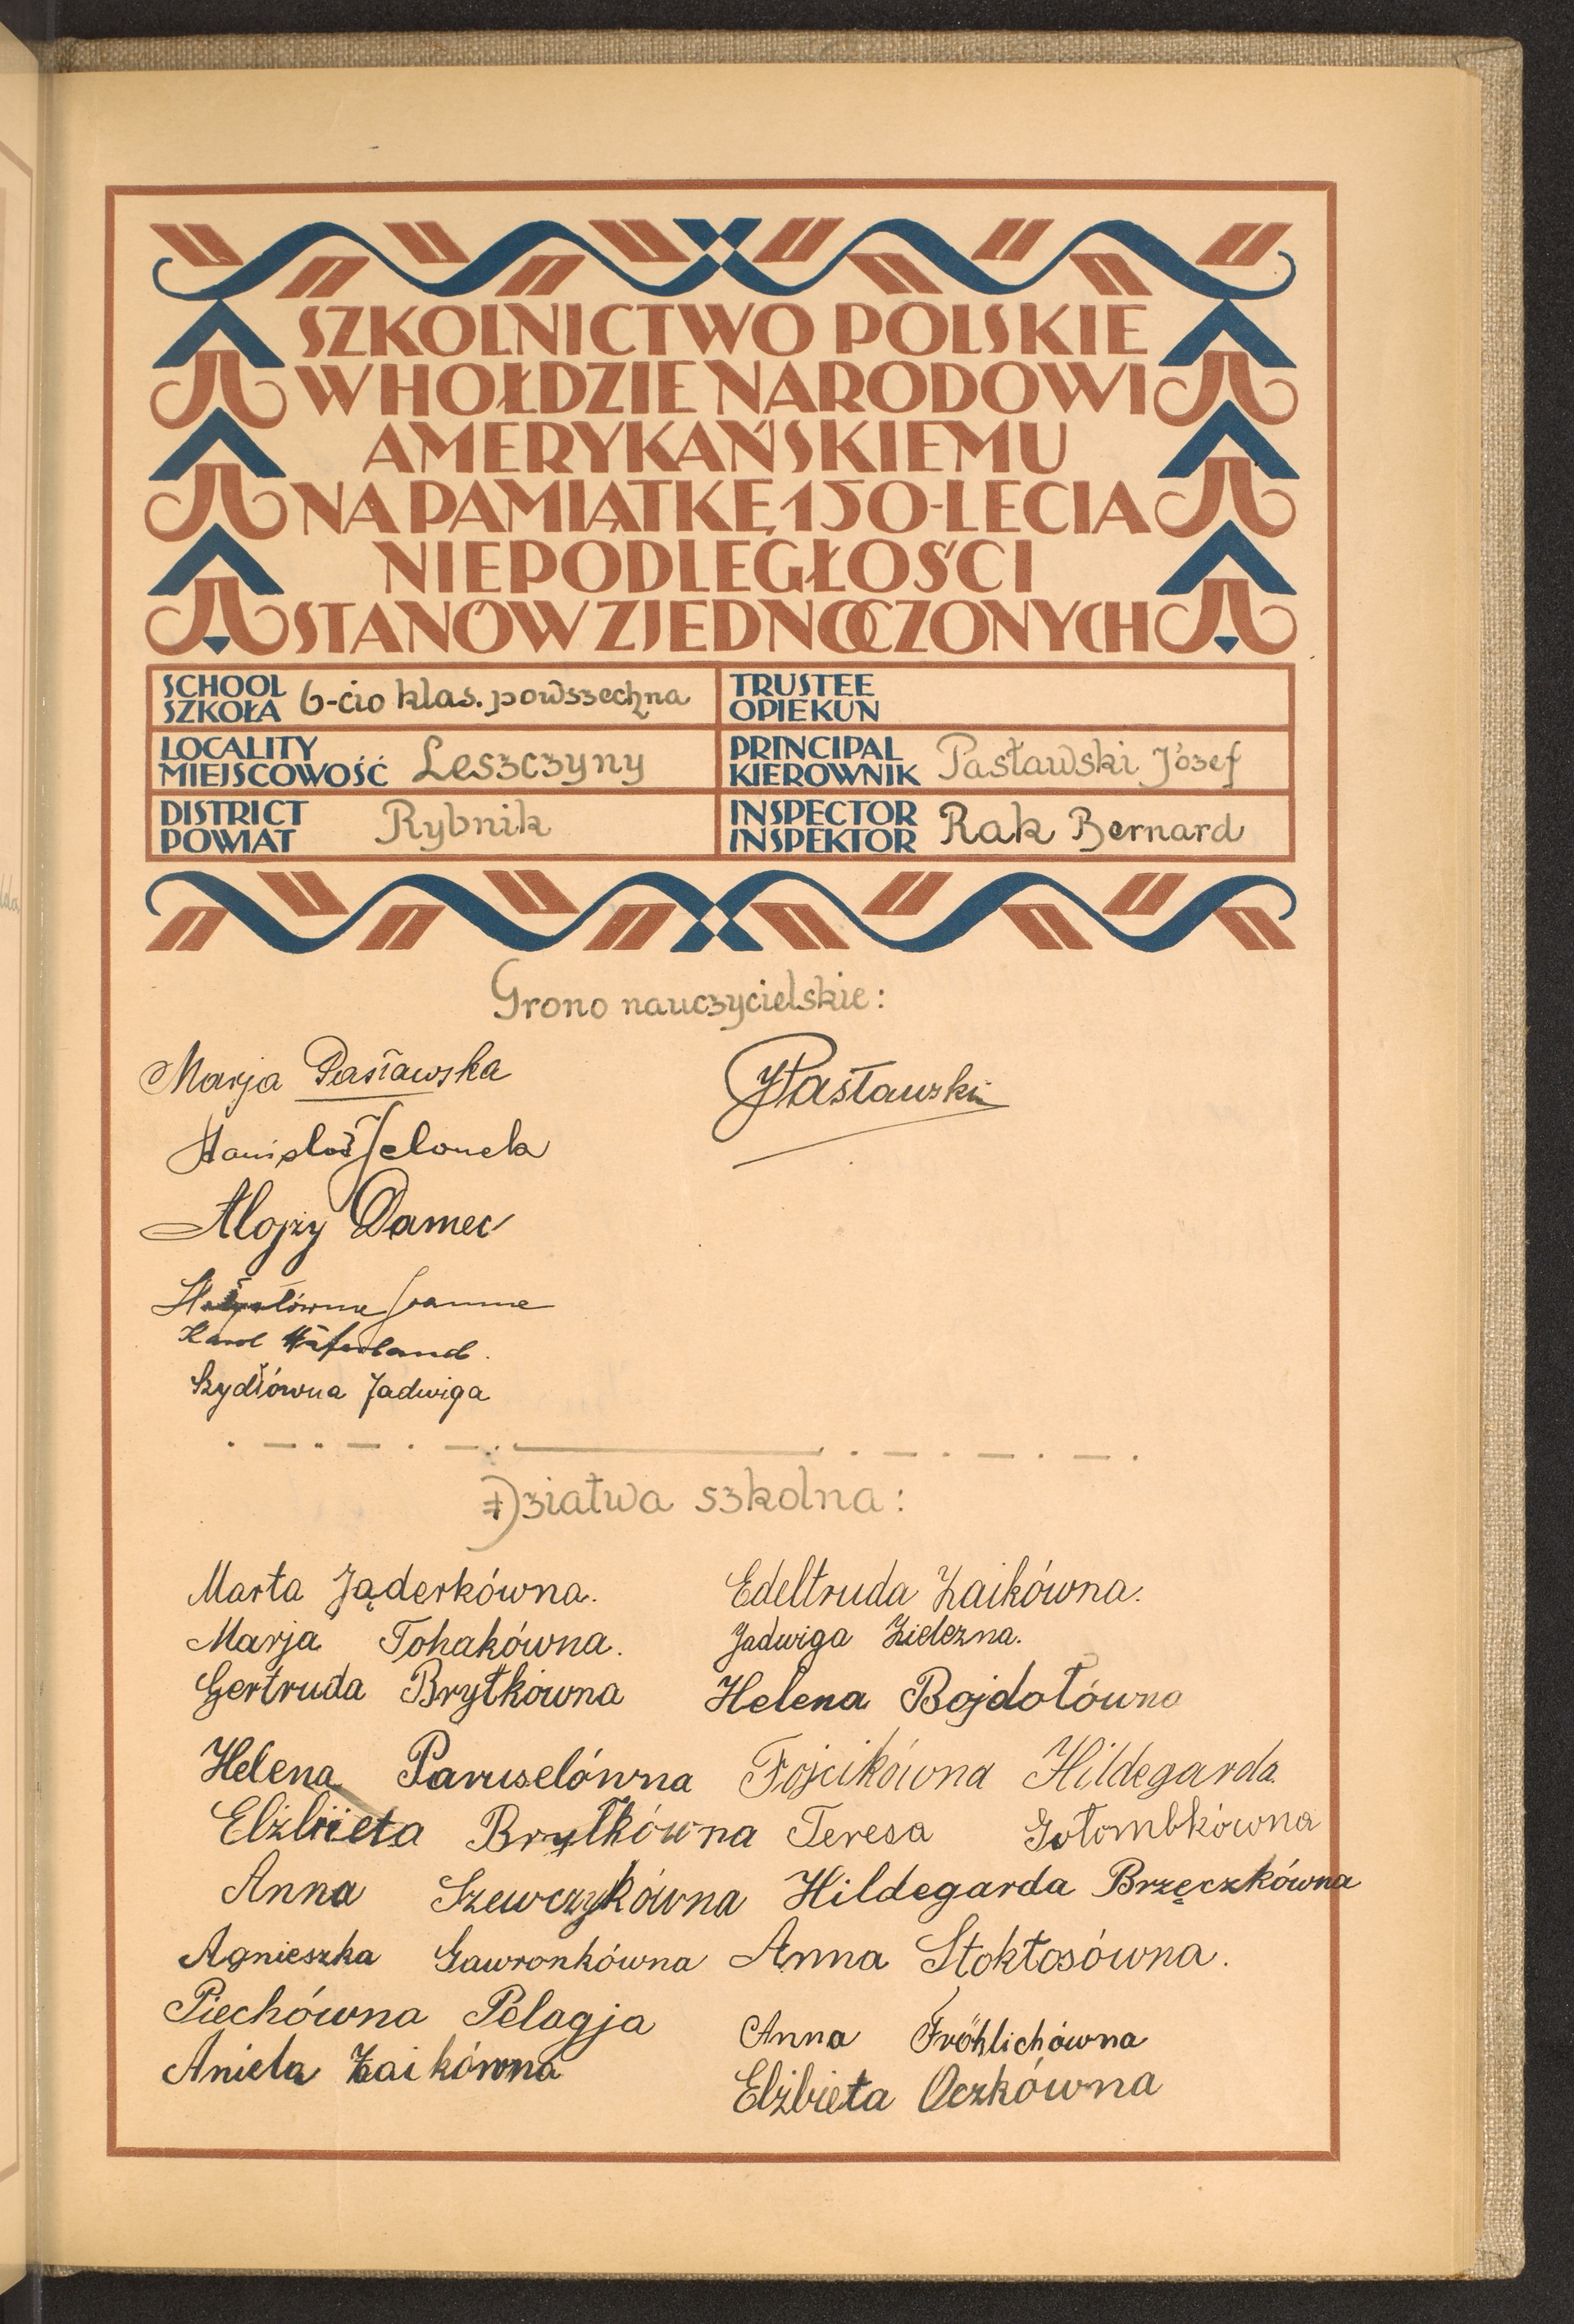 SZKOLNICTWO POLSKIE
W HOŁDZIE NARODOWI
AMERYKAŃSKIEMU
NA PAMIĄTKĘ 150-LECIA
NIEPODLEGŁOŚCI
STANÓW ZJEDNOCZONYCH
SCHOOL
SZKOŁA 6-cio klas. powszechna
TRUSTEE
OPIEKUN
LOCALITY
MIEJSCOWOŚĆ Leszczyny
PRINCIPAL
KIEROWNIK Pasławski Józef
DISTRICT
POWIAT Rybnik
INSPECTOR
INSPEKTOR Rak Bernard
Grono nauczycielskie:
Marja Pasławska
JPasławski
Stanisław Jelonek
Alojzy Damec
Joanna
Karol
Szydłówna Jadwiga
Dziatwa szkolna:
Marta Jąderkówna.
Marja Tohakówna.
Gertruda Brytkówna
Helena Paruselówna
Elżbieta Brytkówna
Anna Szewczykówna
Agnieszka Gawronkówna
Piechówna Pelagja
Aniela Zaikówna
Edeltruda Zaikówna.
Jadwiga Zielezna.
Helena Bojdołówna
Fojcikówna Hildegarda
Teresa Gołombkówna
Hildegarda Brzęczkówna
Anna Stokłosówna.
Anna Fröhlichówna
Elżbieta Oczkówna